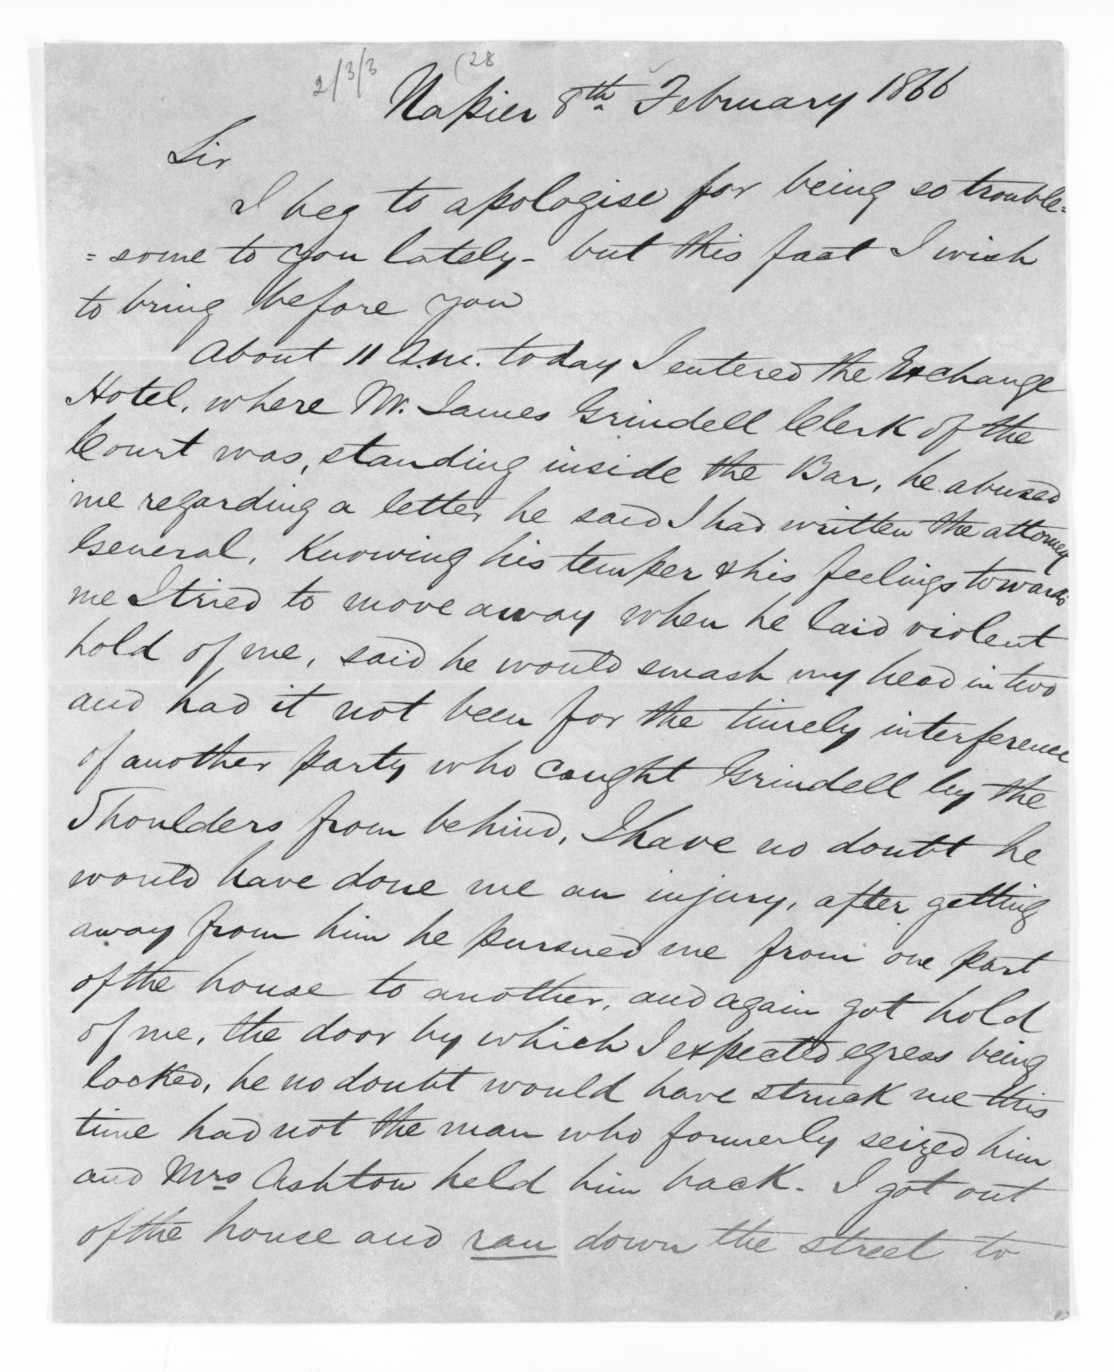 2/3/3 (28
Napier 8th February 1866
Sir
I beg to apologise for being so trouble=
=some to you lately - but this fact I wish
to bring before you
About 11 A.m. today I entered the Exchange
Hotel, where Mr. James Grindell Clerk of the
Court was, standing inside the Bar, he abused
me regarding a letter he said I had written the attorney
General, Knowing his temper & his feelings towards
me I tried to move away when he laid violent
hold of me, said he would smash my head in two
and had it not been for the timely interference
of another party who caught Grindell by the
Shoulders from behind, I have no doubt he
would have done me an injury, after getting
away from him he pursued me from one part
of the house to another, and again got hold
of me, the door by which I expected egress being
locked, he no doubt would have struck me this
time had not the man who formerly seized him
and Mrs Ashton held him back - I got out
of the house and ran down the street to